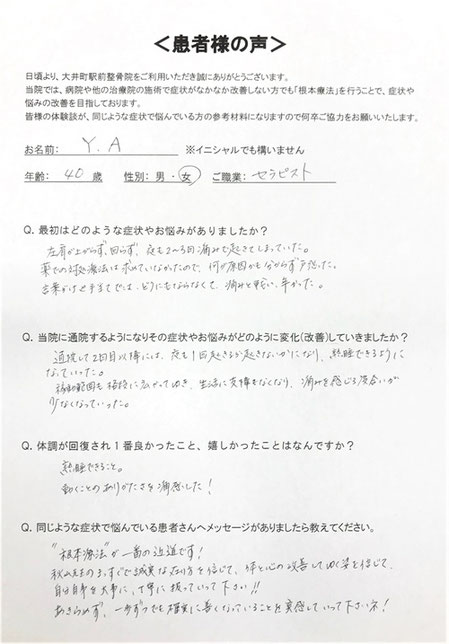 ＜患者様の声＞
日頃より、大井町駅前整骨院をご利用いただき誠にありがとうございます。
当院では、病院や他の治療院の施術で症状がなかなか改善しない方でも「根本療法」を行うことで、症状や
悩みの改善を目指しております。
皆様の体験談が、同じような症状で悩んでいる方の参考材料になりますので何卒ご協力をお願いいたします。
お名前： Y.A ※イニシャルでも構いません
年齢： 40 歳 性別：男・女 ご職業： セラピスト
Q. 最初はどのような症状やお悩みがありましたか？
左肩が上がらず、回らず、夜も2〜3回痛みで起きてしまっていた。
薬での対処療法は求めていなかったので、何が原因かも分からず戸惑った。
お手当てでは、どうにもならなくて、痛みと
Q. 当院に通院するようになりその症状やお悩みがどのように変化（改善）していきましたか？
通院して2回目以降には、夜も1回起きるか起きないかになり、熟睡できるように
なっていった。
稼動範囲も格段に広がってゆき、生活に支障もなくなり、痛みを感じる度合いが
少なくなっていった。
Q. 体調が回復され１番良かったこと、嬉しかったことはなんですか？
熟睡できること。
動くことのありがたさを痛感した！
Q. 同じような症状で悩んでいる患者さんへメッセージがありましたら教えてください。
"根本療法"が一番の近道です！
秋山先生のまっすぐで誠実な在り方を信じて、体と心の改善してゆく姿を信じて、
自分自身を大事に、丁寧に扱っていって下さい!!
あきらめず、一歩ずつでも確実に善くなっていることを実感していって下さいネ！